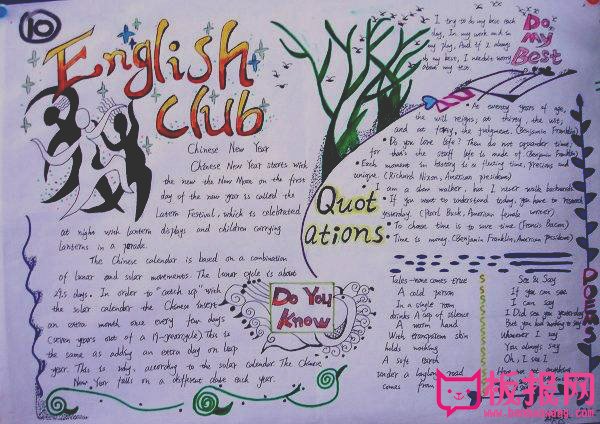 10
English
Club
Chinese New Year
Chinese New Year starts with
the new the New Moon on the first
day of the new year is called the
Latern Festival, which is celebrated
at night with lantern displays and children carrying
lanterns in a parade.
The Chinese calendar is based on a combination
of lunar and solar movements. The lunar cycle is about
29.5 days. In order to "catch up" with
the solar calendar the Chinese insert
an extra month once every few days
(seven years out of a 19-yearcycle) This is
the same as adding an extra day on leap
year. This is why, according to the solar calendar. The Chinese
New Year falls on a different date each year.
Do You
Know
I try to do my best each
day, In my work and in
my play, And if I always
do my best, I needn't worry
about my test.
Do
My
Best
Quot
ations:
At twenty years of age,
the will reigns; at thirty, the wit;
and at forty, the judgment. (Benjamin Franklin)
Do you love life? Then do not squander time;
for that's the stuff life is made of (Benjamin Franklin)
Each moment in history is a fleeting time, precious and
unique. (Richard Nixon, American president)
I am a slow walker, but I never walk backwards.
If you want to understand today, you have to research
yesterday. (Pearl Buck, American female writer)
To choose time is to save time (Francis Bacon)
Time is money. (Benjamin Franklin, American president)
Tales-none comes true
A cold person
In a single room
drinks A cup of silence
A warm hand
With transparent skin
holds nothing
A soft
under a
comes from
See & Say
If you can see
I can say
I Did see you yesterday
But you had nothing to say
Whatever I say
You always say
Oh, I see I
板报网